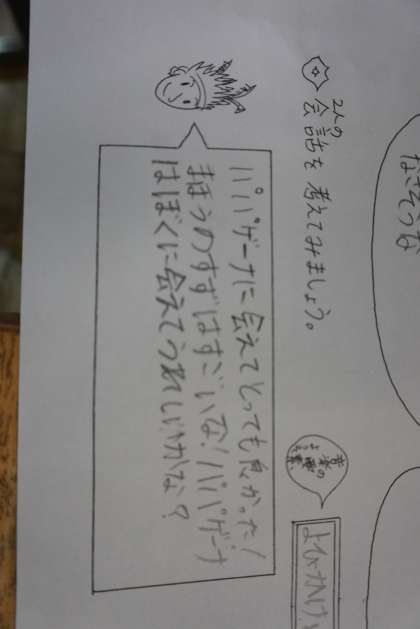 なさそうな
2人の
会話を考えてみましょう。
パパゲーナに会えてとっても良かった!
まほうのすずはすごいな!パパゲーナ
はぼくに会えてうれしいかな?
音楽の
よびかけ